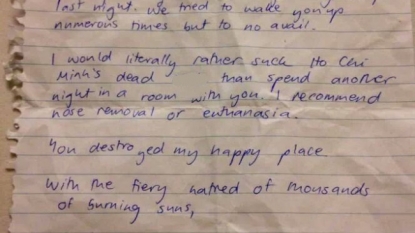 last night. We tried to wake you up
numerous times but to no avail.
I would literally rather suck Ho Chi
Minh's dead than spend another
night in a room with you. I recommend
nose removal or euthanasia.
You destroyed my happy place
With the fiery hatred of thousands
of burning suns,